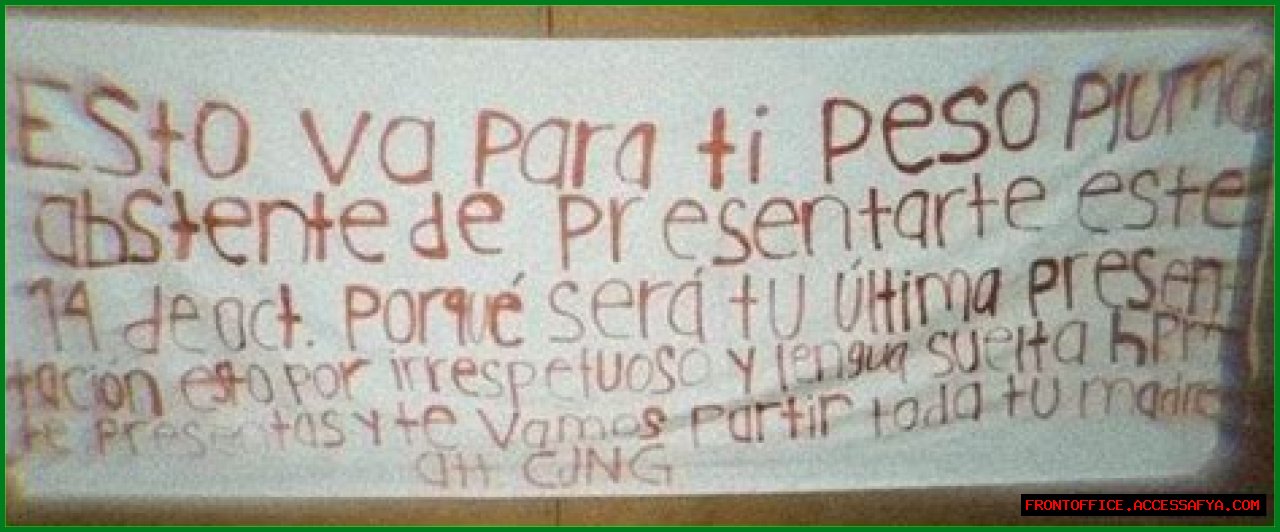 Esto va para ti peso pluma
abstente de presentarte este
14 de oct. porqué será tu última presen-
tacion esto por irrespetuoso y lengua suelta hpm
te presentas y te vamos partir toda tu madre
att CJNG
FRONTOFFICE.ACCESSAFYA.COM